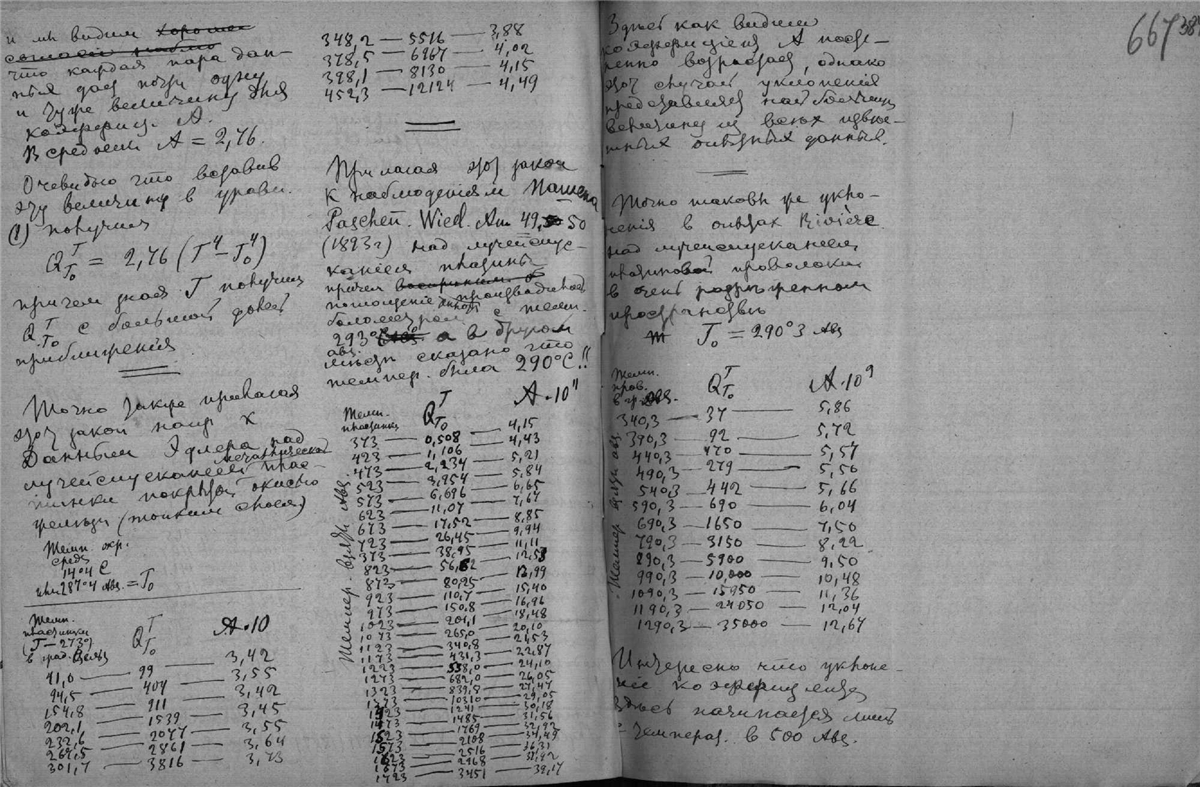 и мы видим хорошее
что каждая пара дан-
ных дает почти одну
и туже величину для
коэффиц. А.
В среднем А = 2,76.
Очевидно что вставив
эту величину в уравн.
(1) получим
Q_{T_0}^T = 2,76 (T^4 – T_0^4)
причем зная T получим
Q_{T_0}^T с большой долей
приближения.
Точно также прилагая
этот закон
Данным Эдлера над
лучеиспусканием
металлической
пластинки покрытой окисью
(тонким слоем)
Темп. окр.
среды
14°4 C
или 287°4 Abs. = T_0
Темп.
пластинки
(T – 273°)
в град. Цельз.
Q_{T_0}^T
A·10
41,0 — 99 — 3,42
94,5 — 404 — 3,55
154,8 — 911 — 3,42
202,1 — 1539 — 3,45
232,6 — 2047 — 3,55
269,5 — 2861 — 3,64
301,7 — 3816 — 3,73
348,2 — 5516 — 3,88
378,5 — 6967 — 4,02
398,1 — 8130 — 4,15
452,3 — 12124 — 4,49
Прилагая этот закон
к наблюдениям Пашена
Paschen. Wied. Ann 49, 50
(1893г) над лучеиспус-
канием платины
причем
поглощение производилось
болометром с темп.
293° а в другом
абз.
месте сказано что
темпер. была 290°C!!
Темп.
пластинки
Q_{T_0}^T
A·10^{11}
Темпер. Цельз. Абз.
373 — 0,508 — 4,15
423 — 1,106 — 4,43
473 — 2,234 — 5,21
523 — 3,954 — 5,84
573 — 6,696 — 6,65
623 — 11,07 — 7,67
673 — 17,52 — 8,85
723 — 26,45 — 9,94
773 — 38,95 — 11,11
823 — 56,62 — 12,58
873 — 80,25 — 13,99
923 — 110,7 — 15,40
973 — 150,8 — 16,96
1023 — 201,1 — 18,48
1073 — 265,0 — 20,10
1123 — 340,8 — 21,53
1173 — 431,3 — 22,87
1223 — 538,0 — 24,10
1273 — 682,0 — 26,05
1323 — 839,8 — 27,47
1373 — 1031,0 — 29,05
1423 — 1241 — 30,18
1473 — 1485 — 31,56
1523 — 1769 — 32,92
1573 — 2108 — 34,49
1623 — 2516 — 36,31
1673 — 2968 — 37,92
1723 — 3451 — 39,17
667
Здесь как видим
коэффициент А посте-
пенно возрастает, однако
этот случай уклонения
представляет наибольшую
величину из всех извест-
ных опытных данных.
Точно таковы же укло-
нения в опытах Rivière
над лучеиспусканием
платиновой проволоки
в очень разреженном
пространстве
T_0 = 290°3 Abs
Темп.
пров.
Q_{T_0}^T
A·10^9
Темпер. Цельз. абз.
340,3 — 37 — 5,86
390,3 — 92 — 5,72
440,3 — 170 — 5,57
490,3 — 279 — 5,56
540,3 — 442 — 5,66
590,3 — 690 — 6,04
690,3 — 1650 — 7,50
790,3 — 3150 — 8,22
890,3 — 5900 — 9,50
990,3 — 10,000 — 10,48
1090,3 — 15950 — 11,36
1190,3 — 24050 — 12,04
1290,3 — 35000 — 12,67
Интересно что уклоне-
ние коэффициента
здесь начинается лишь
с температ. в 500 Abs.